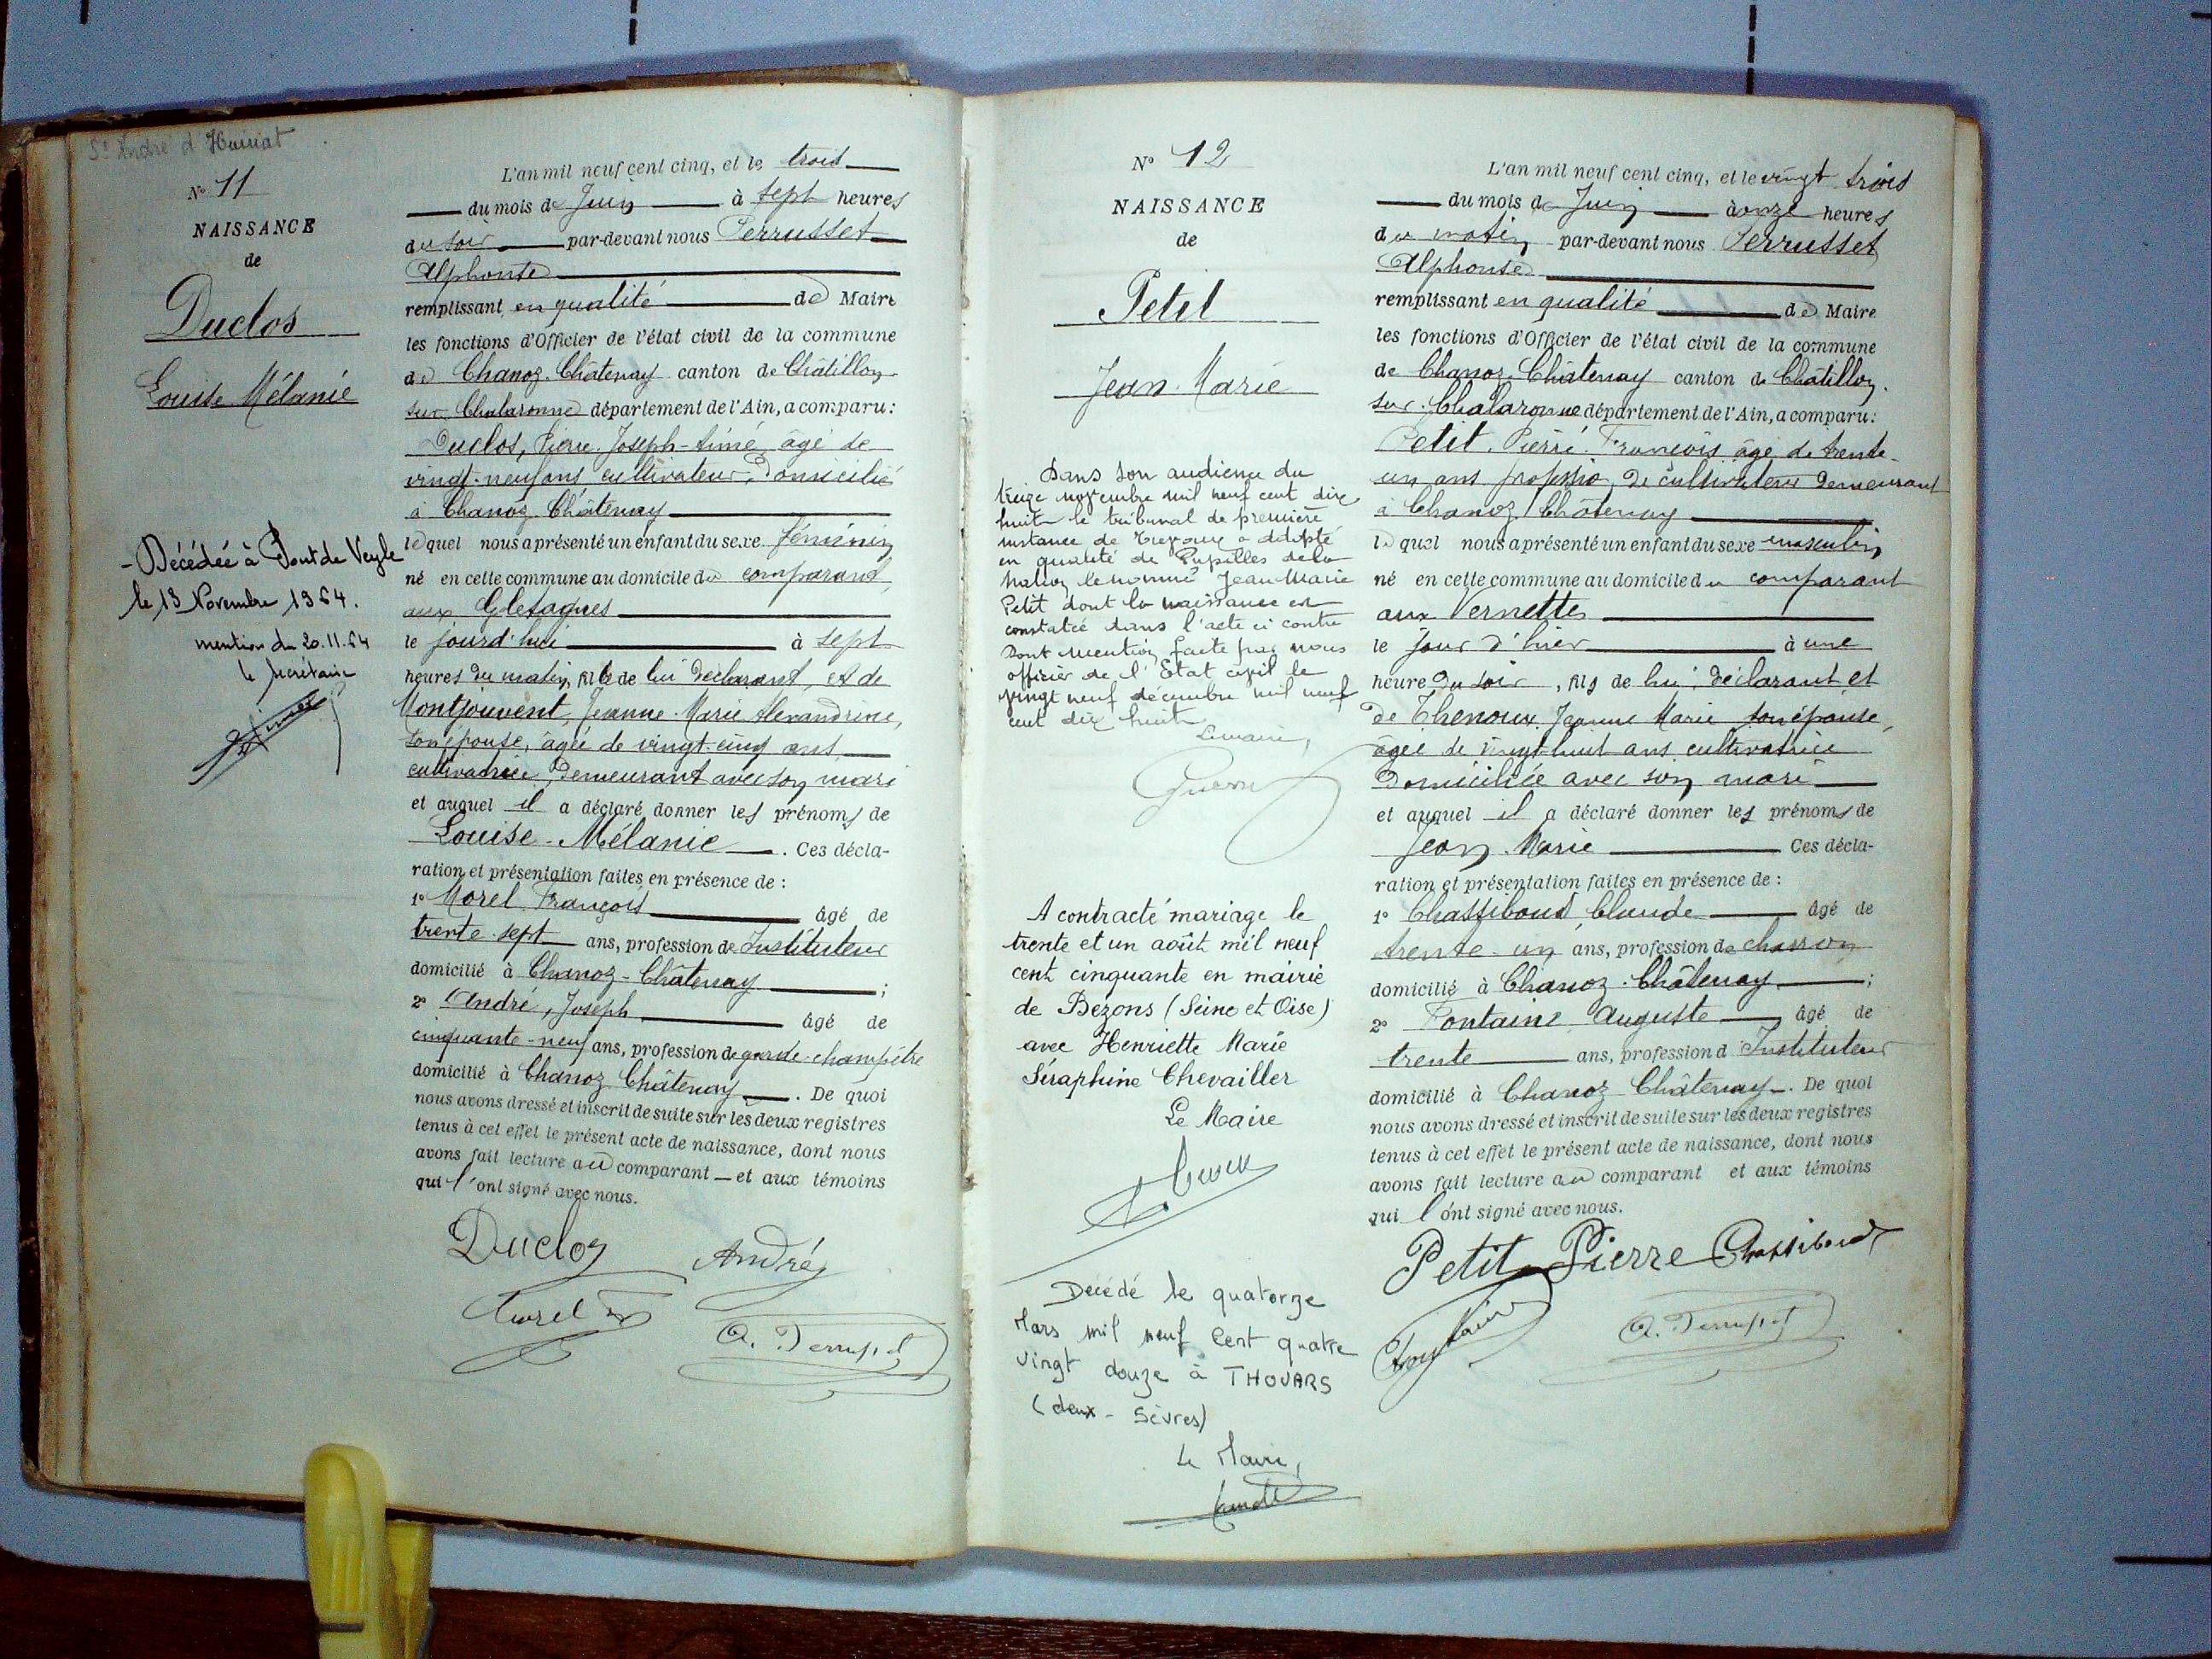 St André d'Huiriat
N° 11
NAISSANCE
de
Duclos
Louise Mélanie
- Décédée à Pont de Veyle
le 13 Novembre 1964.
mention du 20.11.64
le secrétaire
L'an mil neuf cent cinq, et le trois
du mois de Juin à sept heures
du soir par-devant nous Perrusset
Alphonse
remplissant en qualité de Maire
les fonctions d'Officier de l'état civil de la commune
de Chanoz-Châtenay canton de Châtillon-
sur-Chalaronne département de l'Ain, a comparu:
Duclos, Pierre-Joseph-Aimé, âgé de
vingt-neuf ans cultivateur, domicilié
à Chanoz Châtenay
lequel nous a présenté un enfant du sexe féminin
né en cette commune au domicile du comparant
aux
le jourd'hui à sept
heures du matin, fille de lui déclarant, et de
Montjouvent, Jeanne-Marie Alexandrine,
son épouse, âgée de vingt-cinq ans
cultivatrice, demeurant avec son mari
et auquel il a déclaré donner les prénoms de
Louise-Mélanie. Ces décla-
ration et présentation faites en présence de :
1° Morel François âgé de
trente-sept ans, profession de Instituteur
domicilié à Chanoz-Châtenay ;
2° André, Joseph âgé de
cinquante-neuf ans, profession de garde-champêtre
domicilié à Chanoz Châtenay. De quoi
nous avons dressé et inscrit de suite sur les deux registres
tenus à cet effet le présent acte de naissance, dont nous
avons fait lecture au comparant et aux témoins
qui l'ont signé avec nous.
Duclos André
Morel A. Perrusset
N° 12
NAISSANCE
de
Petit
Jean-Marie
Dans son audience du
treize novembre mil neuf cent dix
huit le tribunal de première
instance de Trévoux a adopté
en qualité de Pupilles de la
Nation le nommé Jean Marie
Petit dont la naissance est
constatée dans l'acte ci contre
Dont mention faite par nous
officier de l'Etat civil le
vingt neuf décembre mil neuf
cent dix huit
Le maire,
A contracté mariage le
trente et un août mil neuf
cent cinquante en mairie
de Bezons (Seine et Oise)
avec Henriette Marie
Séraphine Chevailler
Le Maire
Décédé le quatorze
Mars mil neuf cent quatre
vingt douze à THOUARS
(deux-Sèvres)
Le Maire,
L'an mil neuf cent cinq, et le vingt trois
du mois de Juin à onze heures
du matin par-devant nous Perrusset
Alphonse
remplissant en qualité de Maire
les fonctions d'Officier de l'état civil de la commune
de Chanoz-Châtenay canton de Châtillon-
sur-Chalaronne département de l'Ain, a comparu:
Petit, Pierre-François âgé de trente-
un ans profession de cultivateur demeurant
à Chanoz Châtenay
lequel nous a présenté un enfant du sexe masculin
né en cette commune au domicile du comparant
aux Vernettes
le jour d'hier à une
heure du soir, fils de lui déclarant et
de Thenoux Jeanne Marie son épouse,
âgée de vingt-huit ans cultivatrice
domiciliée avec son mari
et auquel il a déclaré donner les prénoms de
Jean-Marie Ces décla-
ration et présentation faites en présence de :
1° Chassiboud Claude âgé de
trente-un ans, profession de charron
domicilié à Chanoz-Châtenay ;
2° Fontaine Auguste âgé de
trente ans, profession d Instituteur
domicilié à Chanoz Châtenay. De quoi
nous avons dressé et inscrit de suite sur les deux registres
tenus à cet effet le présent acte de naissance, dont nous
avons fait lecture au comparant et aux témoins
qui l'ont signé avec nous.
Petit Pierre Chassiboud
Fontaine A. Perrusset